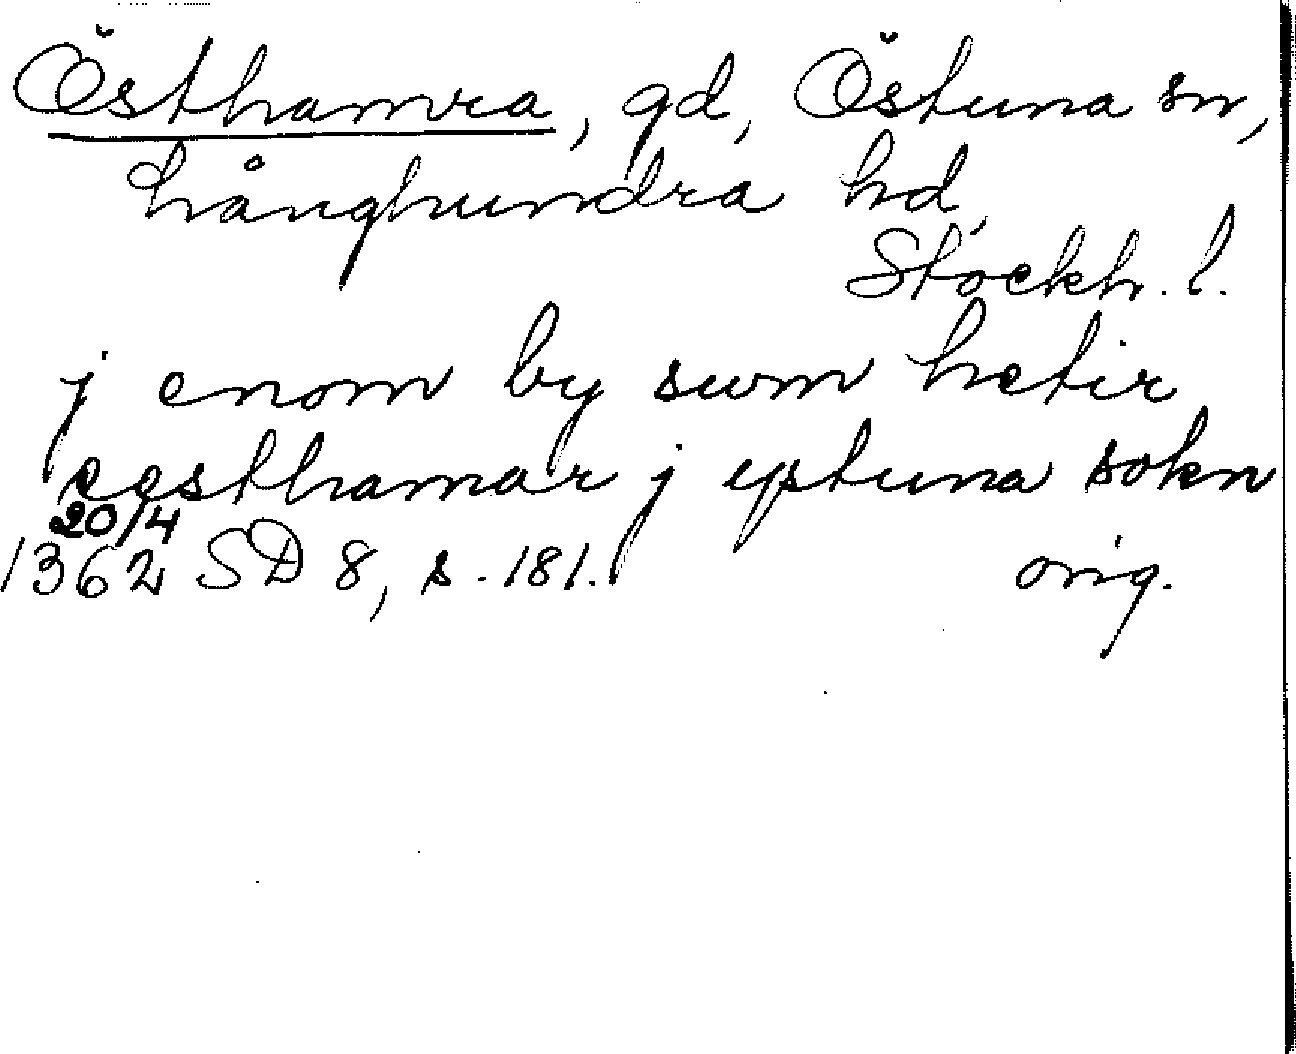 Östhamra, gd, Östuna sn,
Långhundra hd,
Stockh. l.
j enom by swm hetir
eesthamar j ystuna sokn
20/4
1362 SD 8, s. 181. orig.